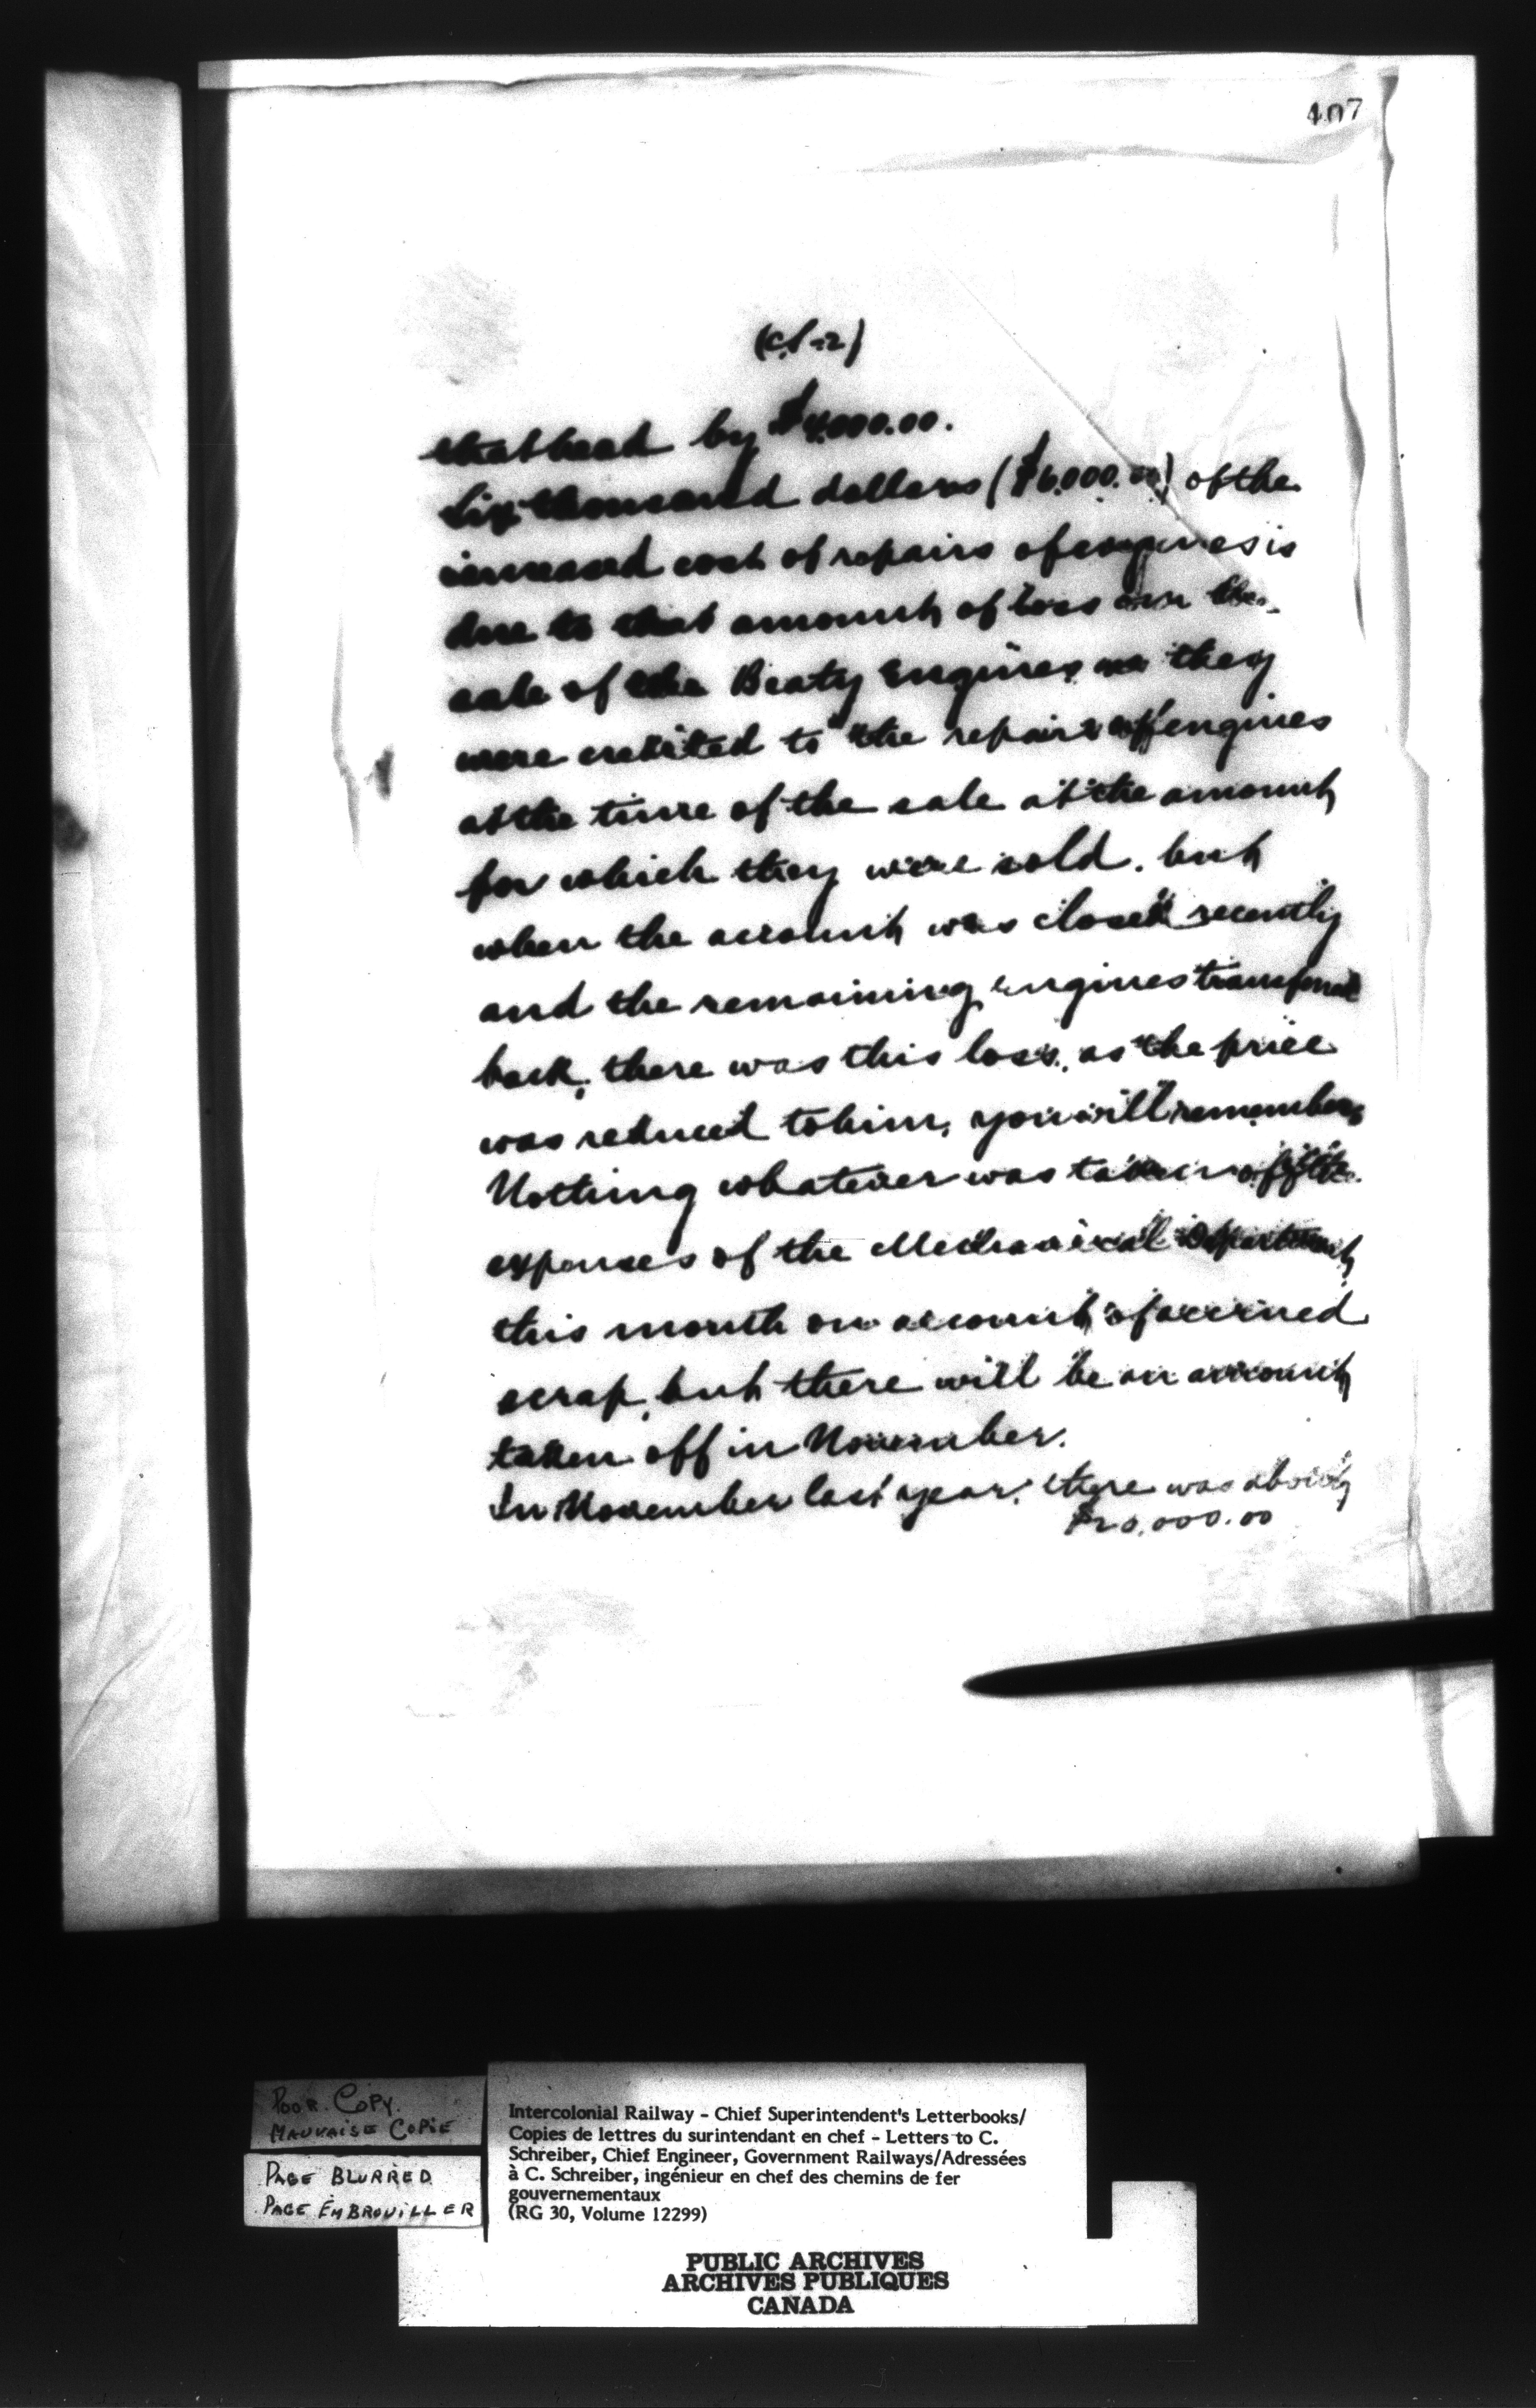 407
(C.S-2)
that head by $4,000.00.
Six thousand dollars ($6,000.00) of the
increased cost of repairs of engines is
due to that amount of loss on the
sale of the Beaty Engines as they
were credited to the repairs of engines
at the time of the sale at the amount
for which they were sold. but
when the account was closed recently
and the remaining engines transferred
back, there was this loss, as the price
was reduced to him, you will remember,
Nothing whatever was taken off the
expenses of the Mechanical Department
this month on account of accrued
scrap, but there will be an amount
taken off in November.
In November last year, there was about
$20,000.00
POOR COPY.
MAUVAISE COPIE
PAGE BLURRED
PAGE EMBROUILLER
Intercolonial Railway - Chief Superintendent's Letterbooks/
Copies de lettres du surintendant en chef - Letters to C.
Schreiber, Chief Engineer, Government Railways/Adressées
à C. Schreiber, ingénieur en chef des chemins de fer
gouvernementaux
(RG 30, Volume 12299)
PUBLIC ARCHIVES
ARCHIVES PUBLIQUES
CANADA